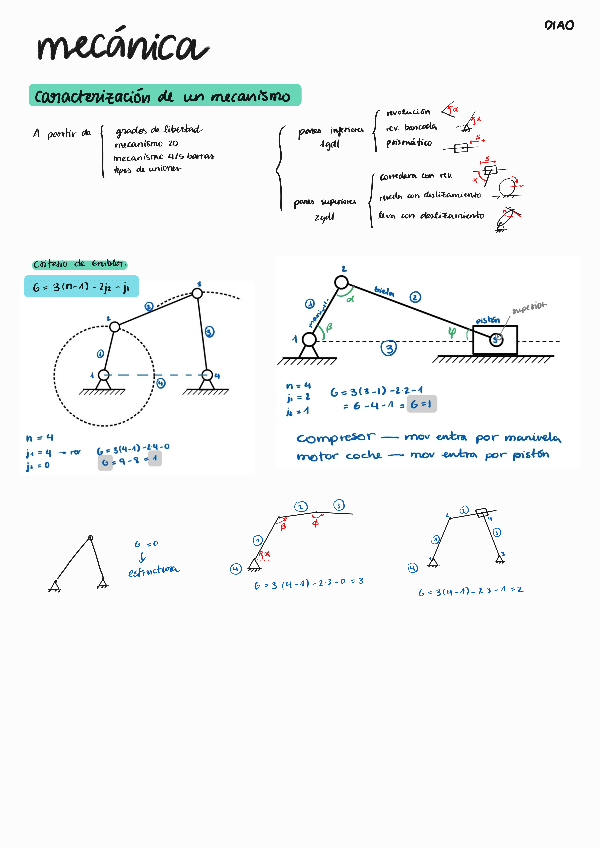 DIA0
mecánica
Caracterización de un mecanismo
A partir de
grados de libertad
mecanismo 2D
mecanismo 4/5 barras
tipos de uniones
pares inferiores
1gdl
revolución
rev. bancada
prismático
pares superiores
2gdl
corredera con rev.
rueda con deslizamiento
leva con deslizamiento
Criterio de Grübler.
G = 3(n-1) - 2j₂ - j₁
1
2
3
4
1
2
3
4
n = 4
j₁ = 4 → rev
j₂ = 0
G = 3(4-1) - 2·4 - 0
G = 9 - 8 = 1
1
2
1
manivela
biela
2
3
α
β
φ
pistón
superior
n = 4
j₁ = 2
j₂ = 1
G = 3(3-1) - 2·2 - 1
= 6 - 4 - 1 = G = 1
compresor — mov entra por manivela
motor coche — mov entra por pistón
G = 0
estructura
1
2
3
4
α
β
φ
G = 3(4-1) - 2·3 - 0 = 3
G = 3(4-1) - 2·3 - 1 = 2